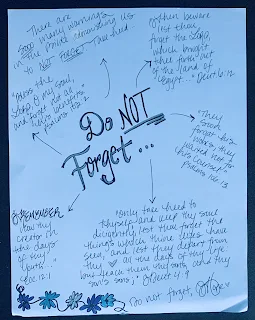 There are
Sooo many warnings
in the Psalms admonishing us
to NOT FORGET - Take heed.
"Bless the
Lord, O my soul,
and forget not all
his benefits"
Psalms 103:2
"Then beware
lest thou
forget the Lord,
which brought
thee forth out
of the land of
Egypt..." Deut 6:12
Do NOT
Forget...
"They
soon
forgat his
works; they
waited not for
his counsel"
Psalms 106:13
REMEMBER
now thy
Creator in
the days
of thy
Youth
Ecc. 12:1
"Only take heed to
thyself, and keep thy soul
diligently, lest thou forget the
things which thine eyes have
seen, and lest they depart from
thy ♡ all the days of thy life:
but teach them thy sons, and thy
son's sons;" Deut 4:9
Do not forget,